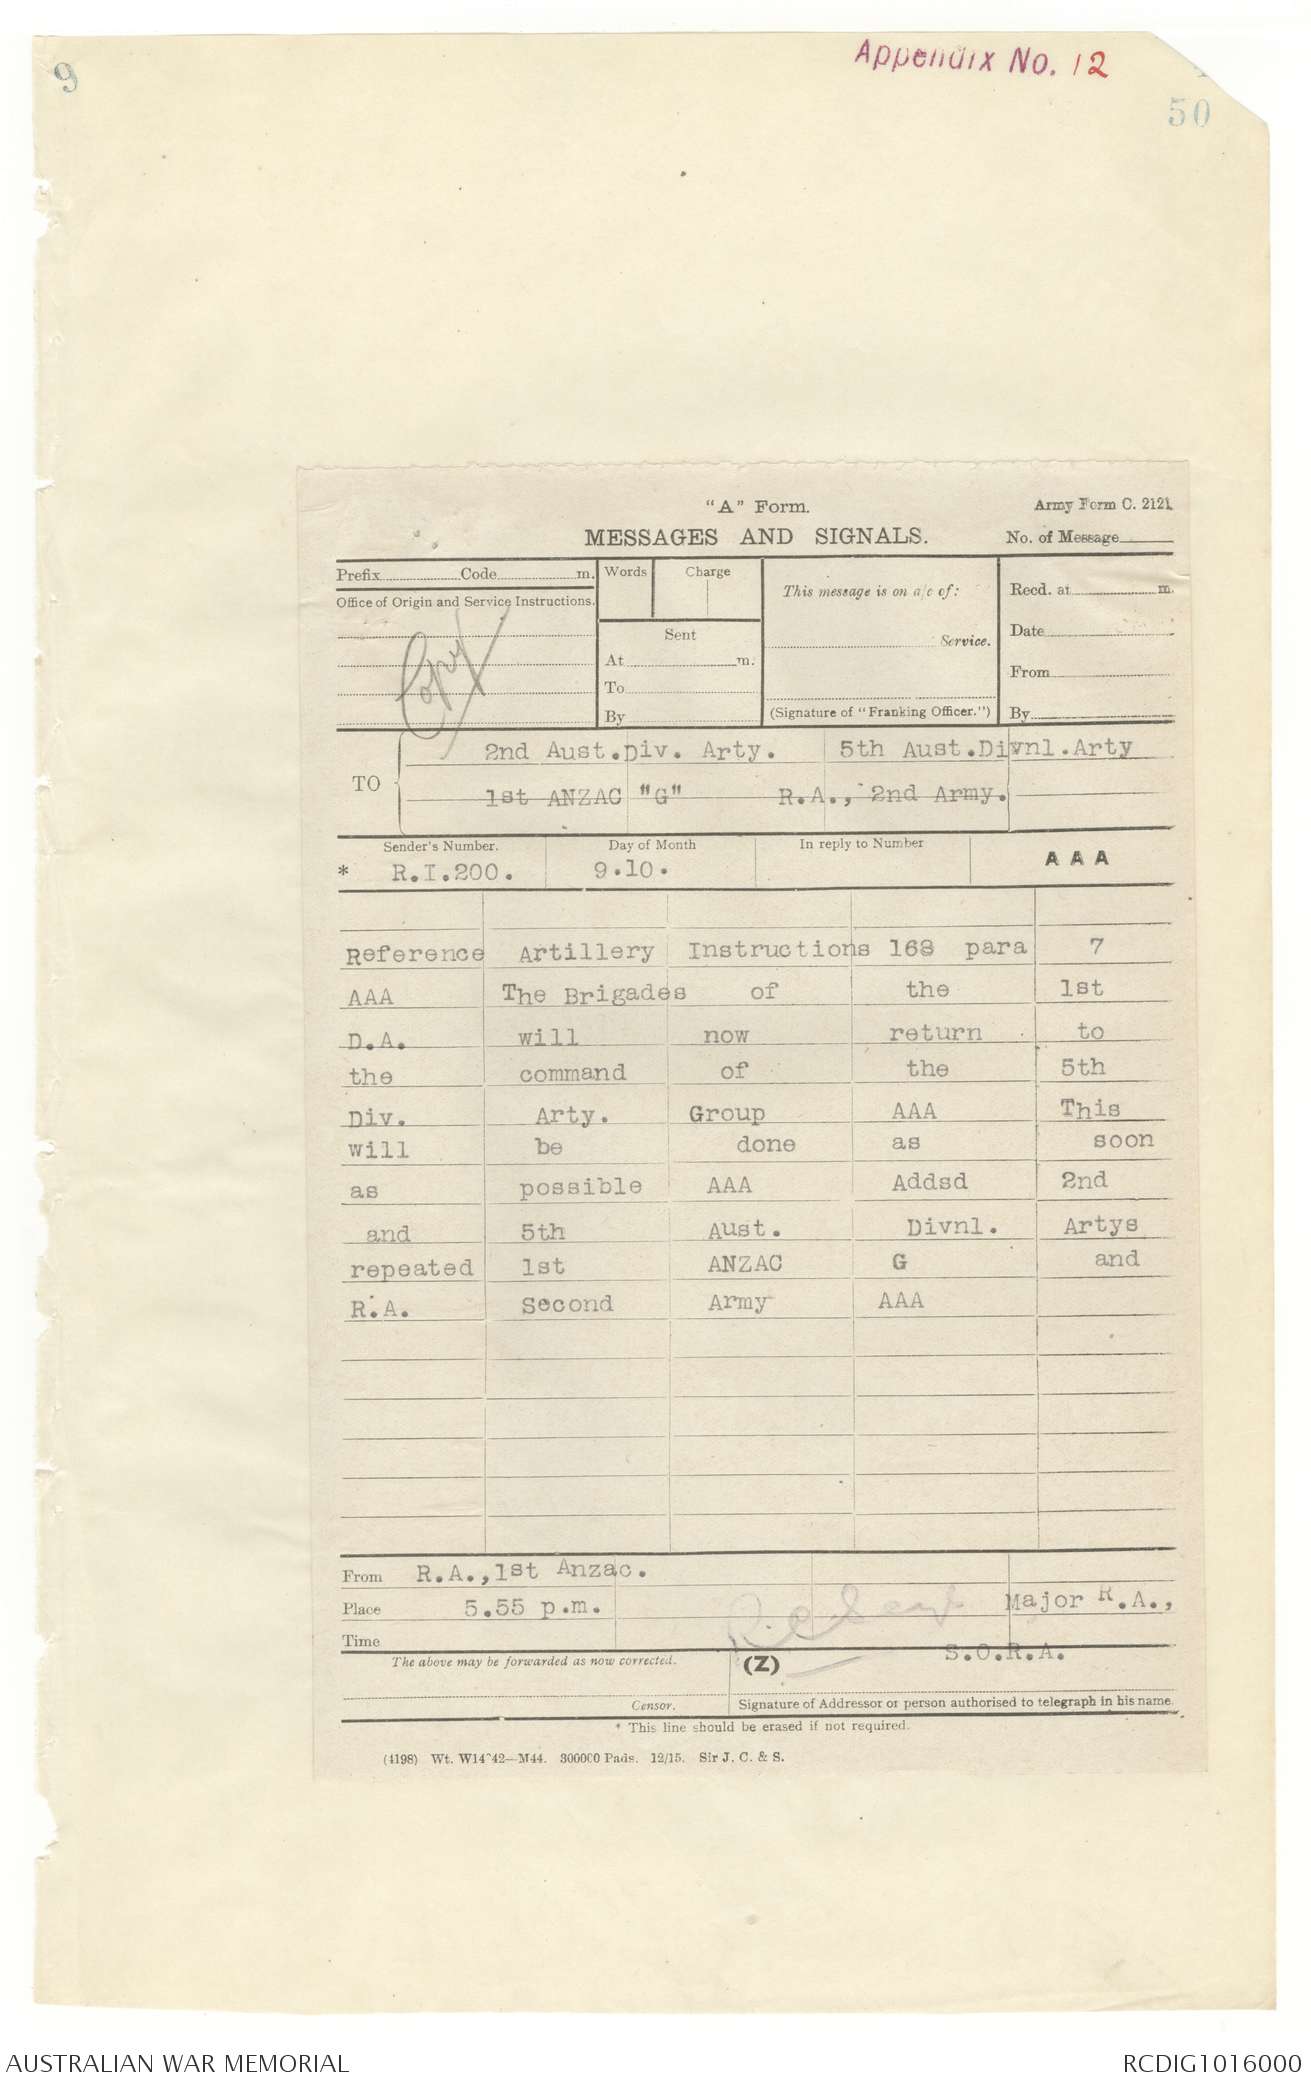 Appendix No. 12
9
50
"A" Form.
Army Form C. 2121
MESSAGES AND SIGNALS.
No. of Message
Prefix Code m.
Words
Charge
This message is on a/c of:
Recd. at m.
Office of Origin and Service Instructions.
Copy
Sent
Service.
Date
At m.
From
To
By
(Signature of "Franking Officer.")
By
TO
2nd Aust.Div. Arty. 5th Aust.Divnl.Arty
1st ANZAC "G" R.A., 2nd Army.
Sender's Number.
Day of Month
In reply to Number
* R.I.200.
9.10.
AAA
Reference Artillery Instructions 168 para 7
AAA The Brigades of the 1st
D.A. will now return to
the command of the 5th
Div. Arty. Group AAA This
will be done as soon
as possible AAA Addsd 2nd
and 5th Aust. Divnl. Artys
repeated 1st ANZAC G and
R.A. Second Army AAA
From R.A.,1st Anzac.
Place 5.55 p.m.
Major R.A.,
Time
S.O.R.A.
The above may be forwarded as now corrected.
(Z)
Censor.
Signature of Addressor or person authorised to telegraph in his name.
* This line should be erased if not required.
(4198) Wt. W14042—M44. 300000 Pads. 12/15. Sir J. C. & S.
AUSTRALIAN WAR MEMORIAL
RCDIG1016000